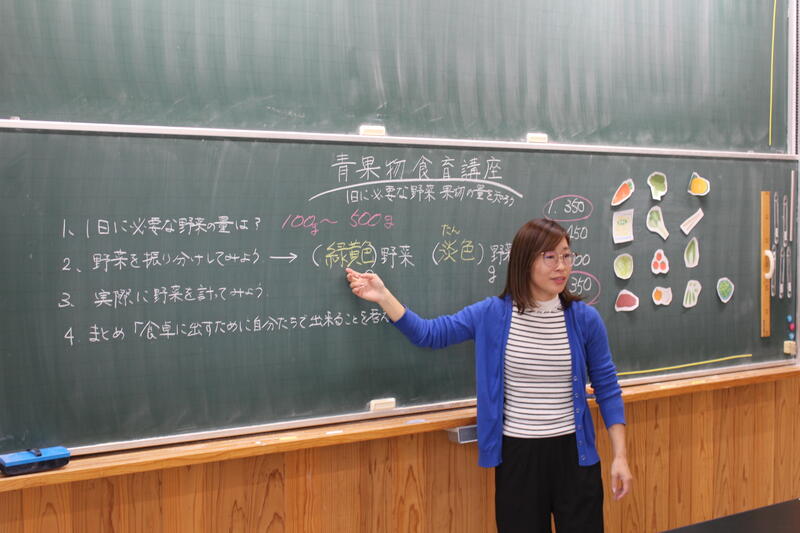 青果物食育講座
1日に必要な野菜 果物の量を知ろう
1、1日に必要な野菜の量は？ 100g～500g
2、野菜を振り分けしてみよう → (緑黄色)野菜 (淡色)野菜
たん
g
3、実際に野菜を計ってみよう
4、まとめ「食卓に出すために自分たちで出来ることを考え
1. 350
450
350